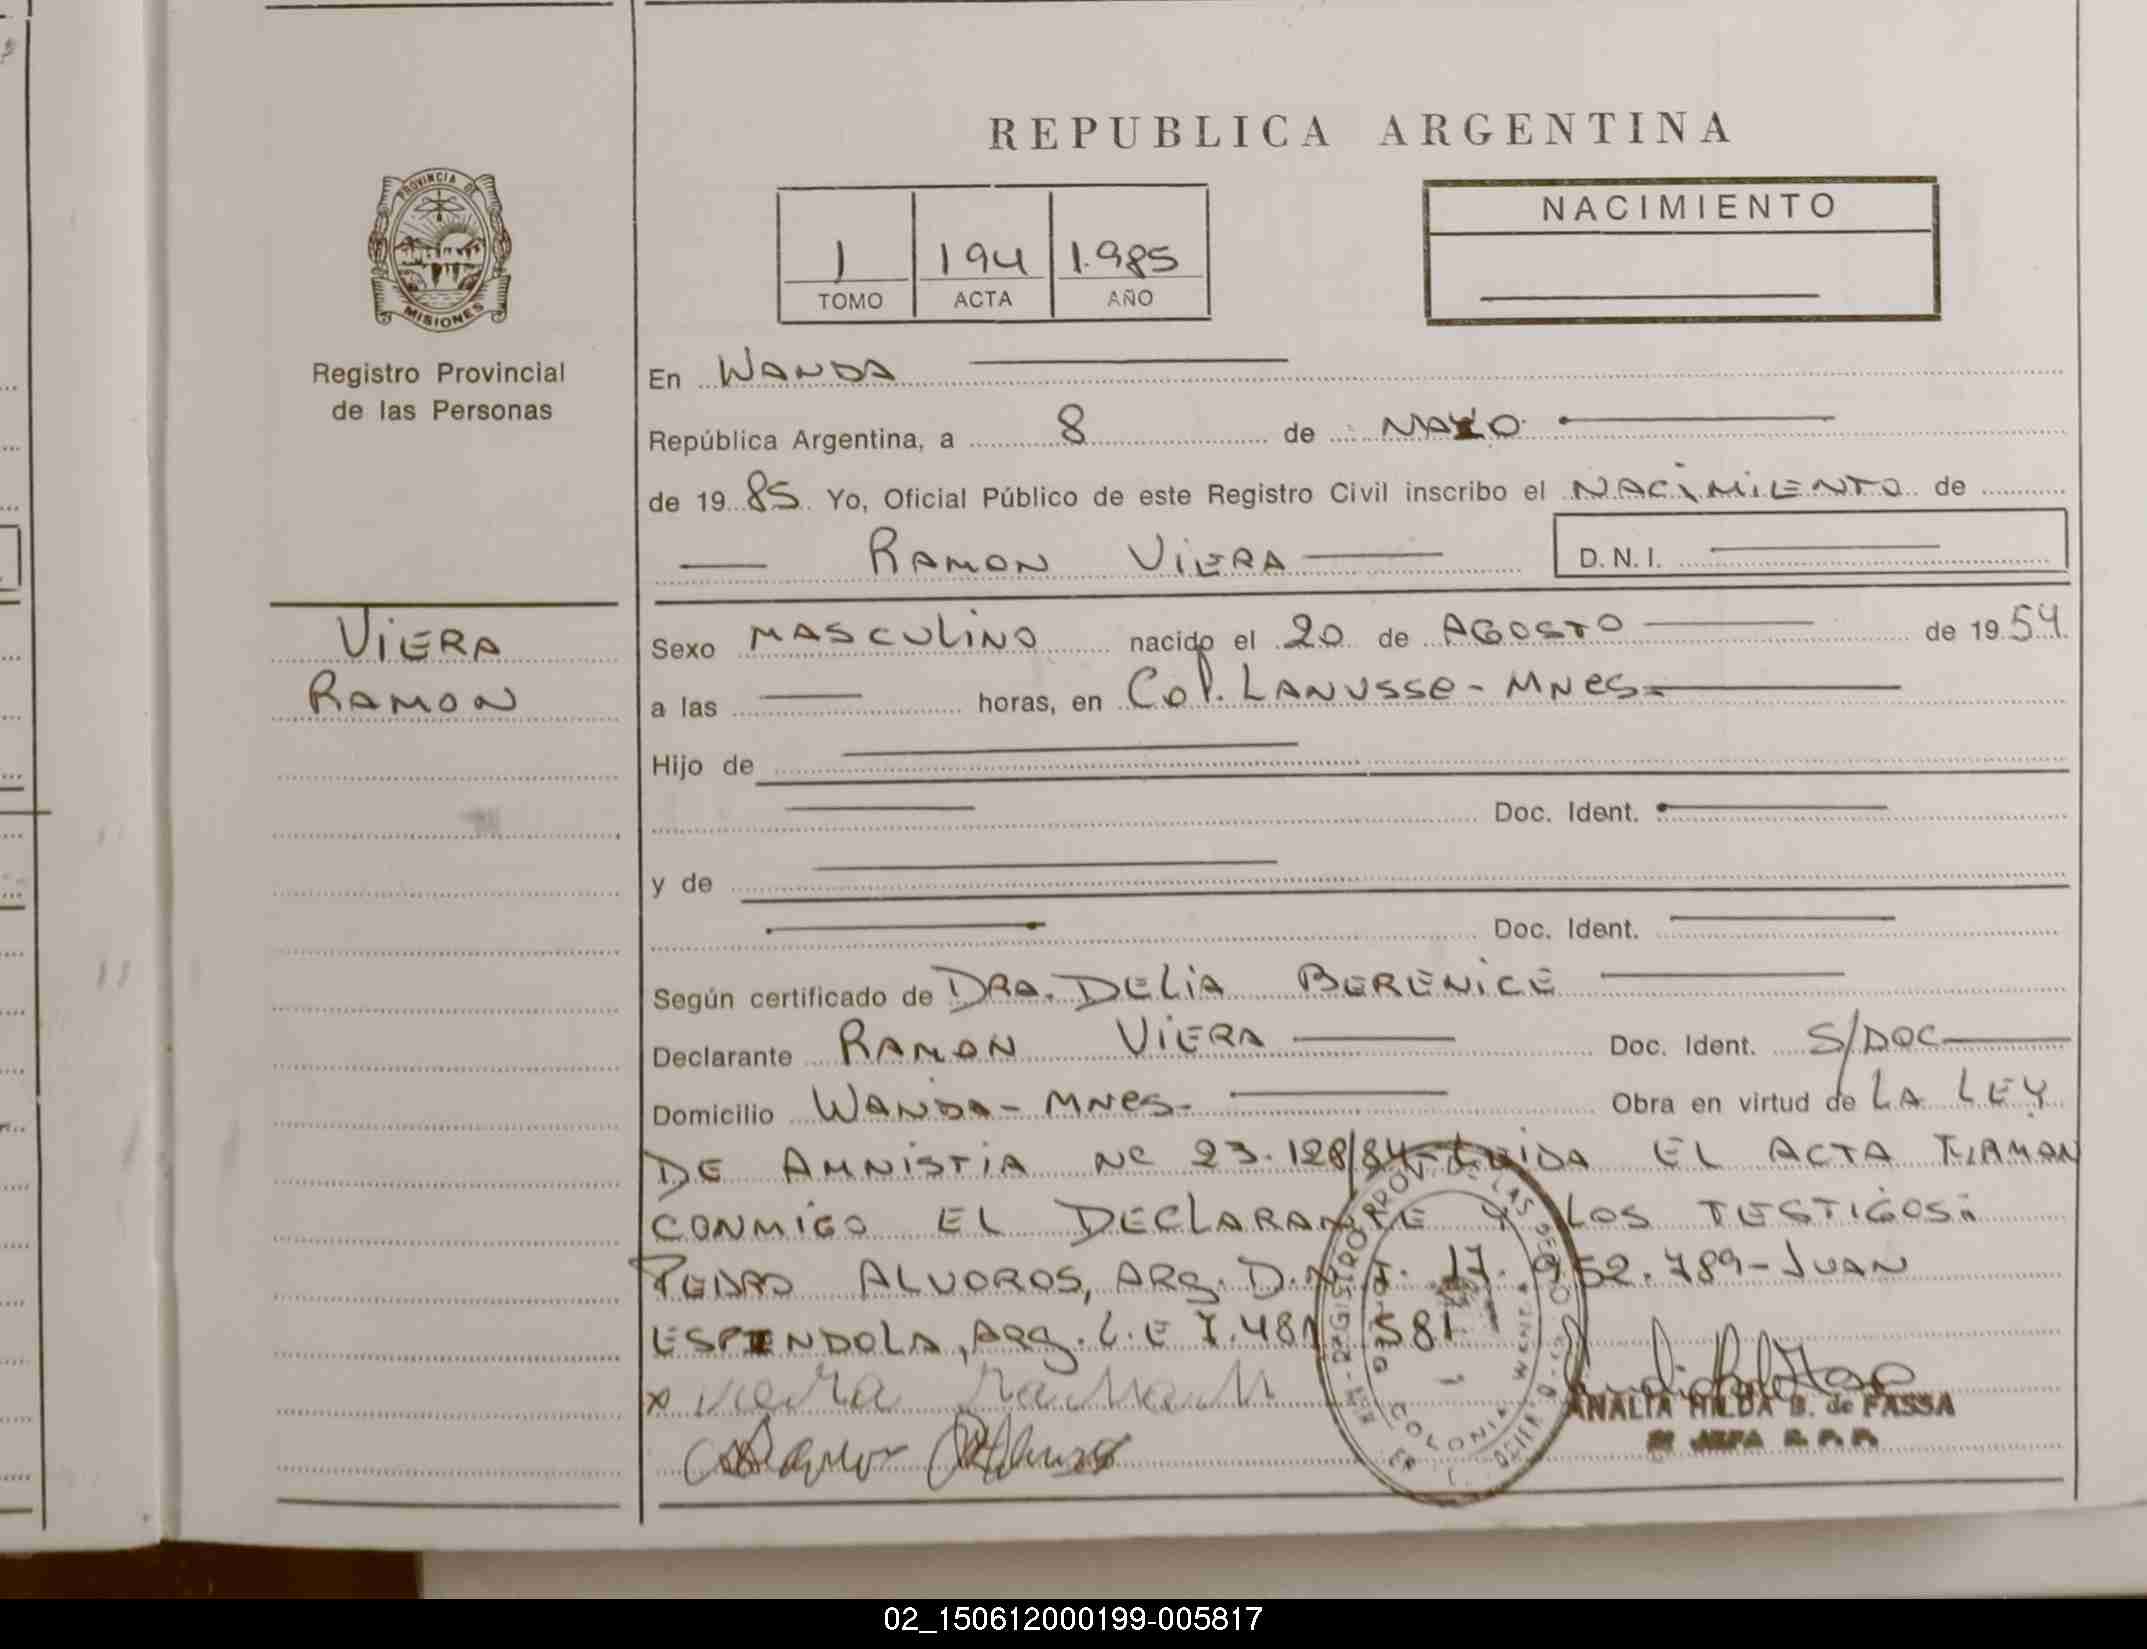 REPUBLICA ARGENTINA
PROVINCIA DE
MISIONES
Registro Provincial
de las Personas
1 194 1.985
TOMO ACTA AÑO
NACIMIENTO
En WANDA
República Argentina, a 8 de MAYO
de 19 85 Yo, Oficial Público de este Registro Civil inscribo el NACIMIENTO de
RAMON VIERA D.N.I.
VIERA
RAMON
Sexo MASCULINO nacido el 20 de AGOSTO de 19 54.
a las horas, en Col. LANUSSE - MNES.
Hijo de
Doc. Ident.
y de
Doc. Ident.
Según certificado de DRA. DELIA BERENICE
Declarante RAMON VIERA Doc. Ident. S/DOC
Domicilio WANDA - MNES. Obra en virtud de LA LEY
DE AMNISTIA Nº 23.128/84 LEIDA EL ACTA FIRMAN
CONMIGO EL DECLARANTE Y LOS TESTIGOS:
PEDRO ALVOROS, ARG. D.N.I. 17.952.789 - JUAN
ESPINDOLA, ARG. L.E 7.481 581
x
ANALIA HILDA B. de FASSA
JEFA R. P. P.
02_150612000199-005817